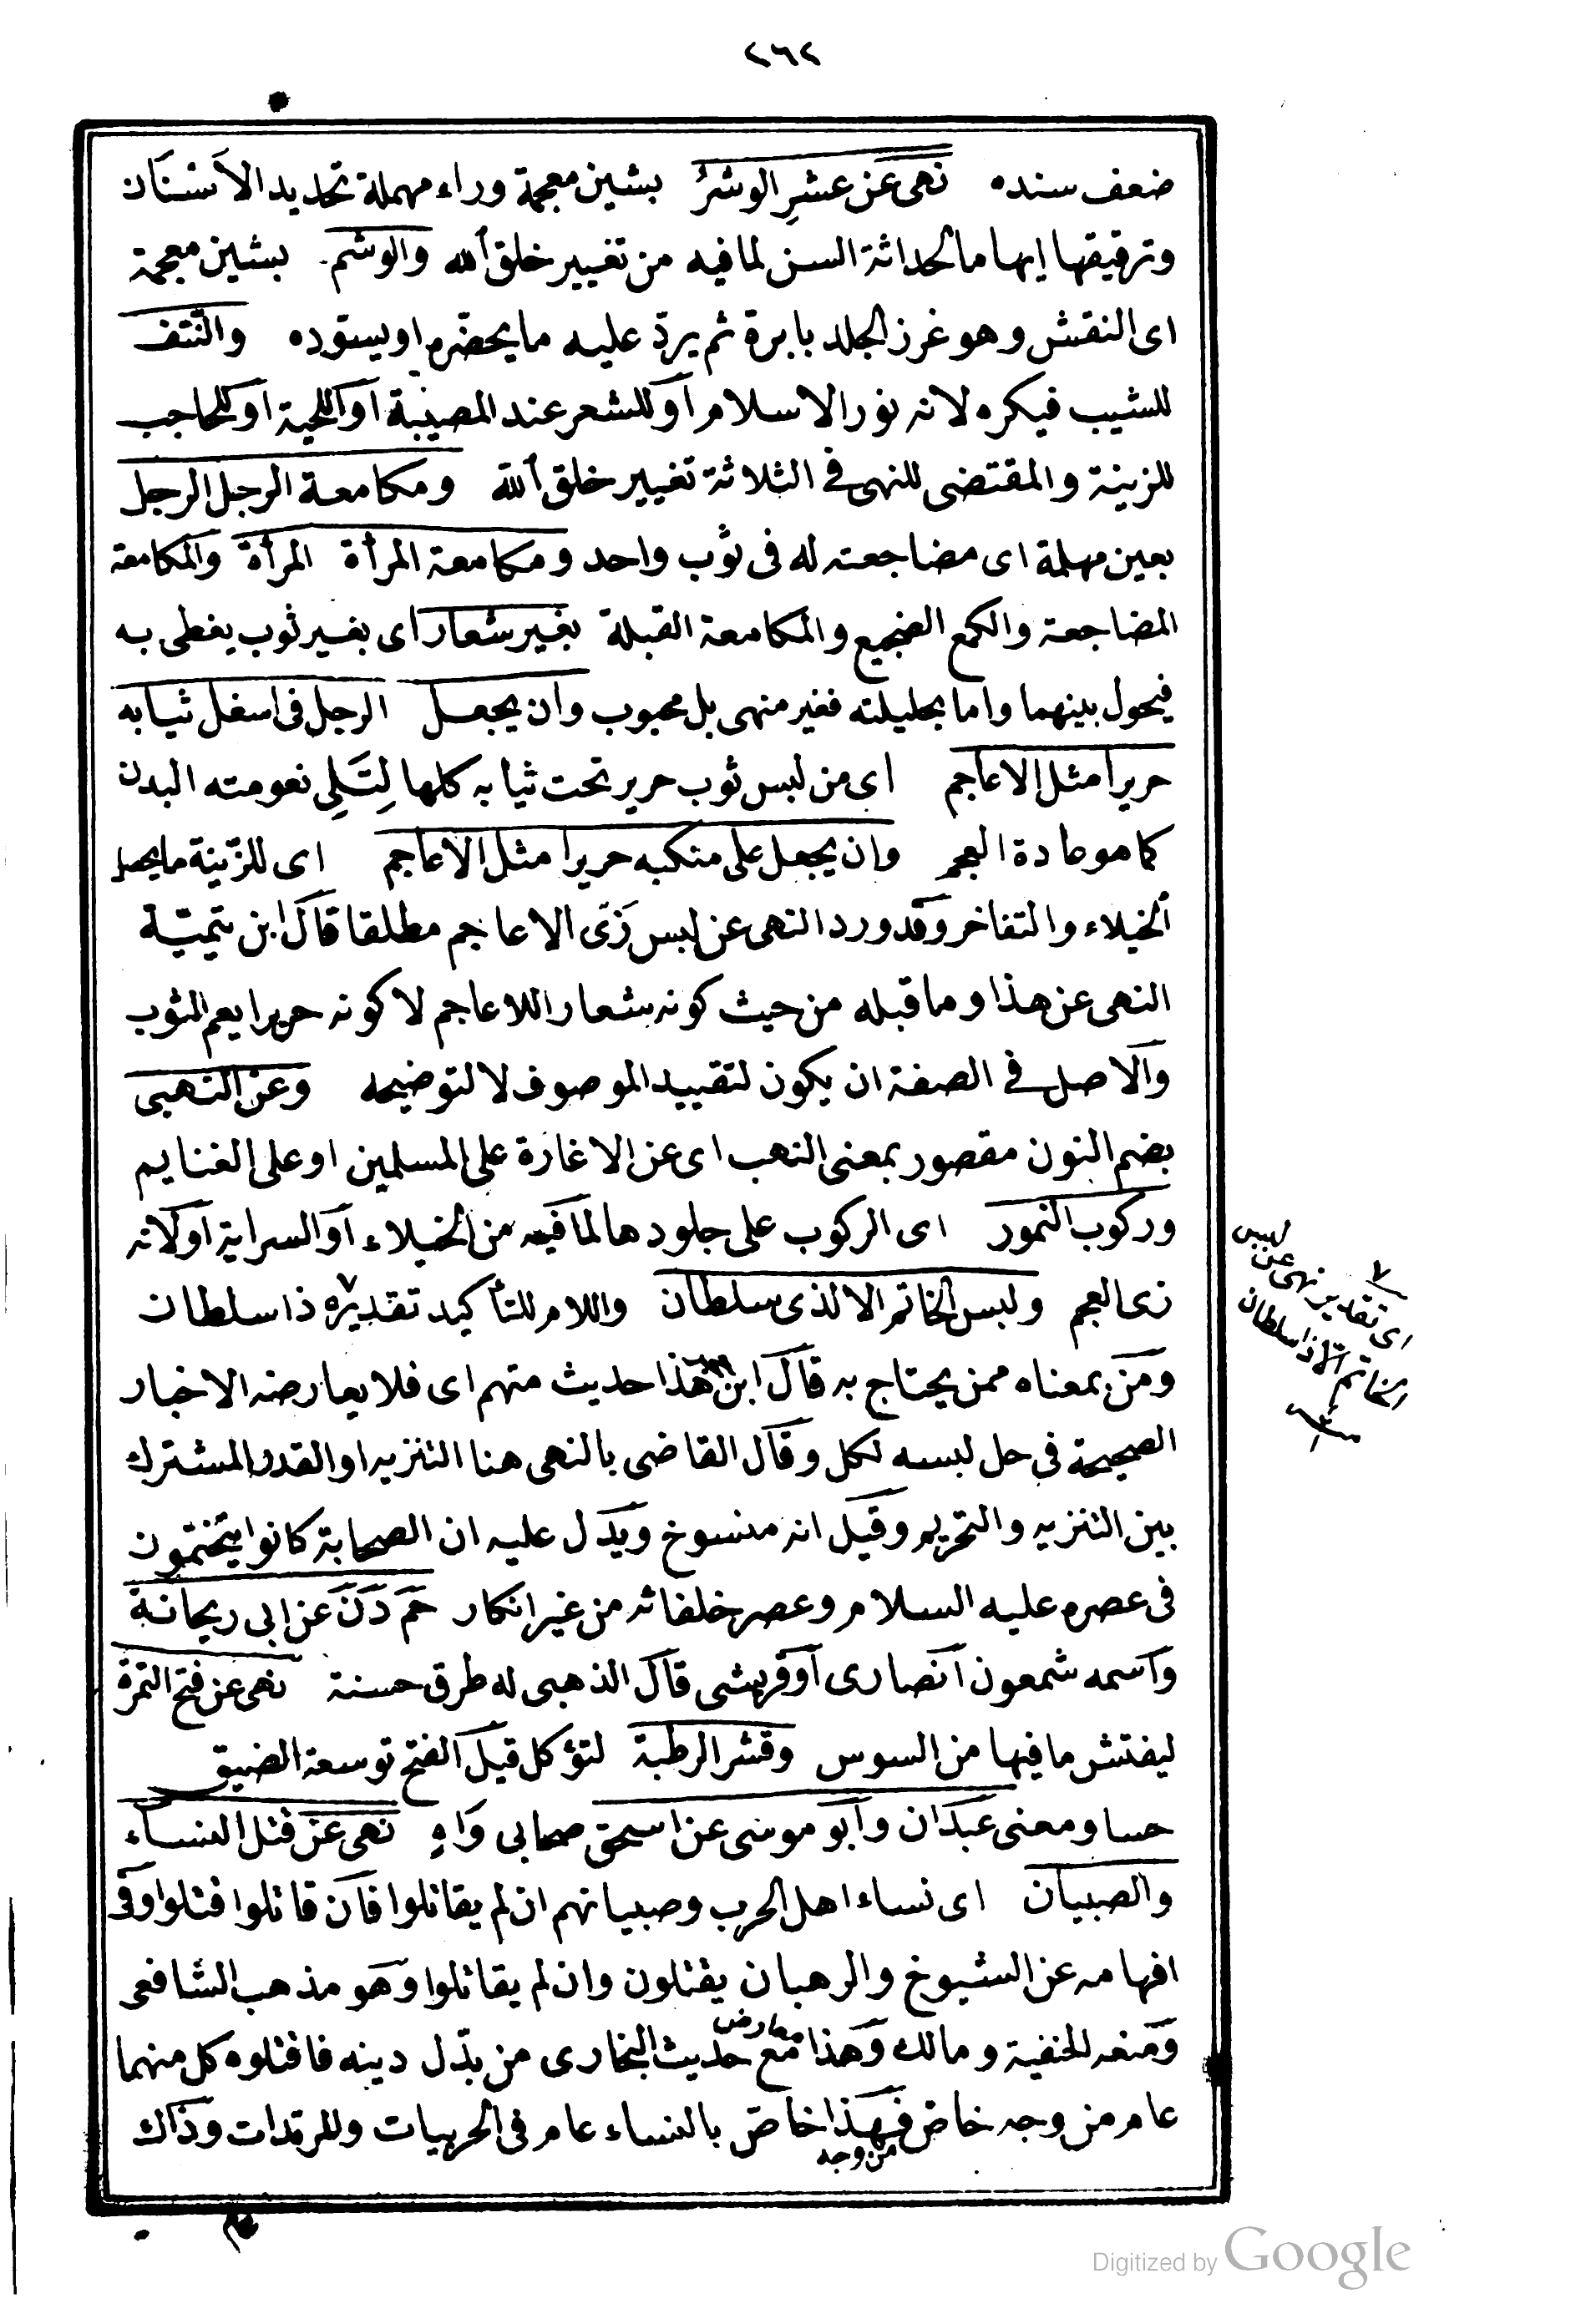 ٢٦٢
ضعف سنده نهى عن عشر الوشر بشين معجمة وراء مهملة تحديد الاسنان
وترقيقها ايهاما لحداثة السن لما فيه من تغيير خلق الله والوشم بشين معجمة
اى النقش وهو غرز الجلد بابرة ثم يرد عليه ما يخضره او يسوده والنتف
للشيب فيكره لانه نور الاسلام او للشعر عند المصيبة او اللحية او للحاجب
للزينة والمقتضى للنهى فى الثلاثة تغيير خلق الله ومكامعة الرجل الرجل
بعين مهملة اى مضاجعته له فى ثوب واحد ومكامعة المرأة المرأة والمكامعة
المضاجعة والكمع الضجيع والمكامعة القبلة بغير شعار اى بغير ثوب يغطى به
فيحول بينهما واما بحليلته فغير منهى بل محبوب وان يجعل الرجل فى اسفل ثيابه
حريرا مثل الاعاجم اى من لبس ثوب حرير تحت ثيابه كلها لتلى نعومته البدن
كما هو عادة العجم وان يجعل على منكبه حريرا مثل الاعاجم اى للزينة ما يحصل
الخيلاء والتفاخر وقد ورد النهى عن لبس زى الاعاجم مطلقا قال ابن تيمية
النهى عن هذا وما قبله من حيث كونه شعارا للاعاجم لا كونه حريرا يعم الثوب
والاصل فى الصفة ان يكون لتقييد الموصوف لا لتوضيحه وعن النهبى
بضم النون مقصور بمعنى النهب اى عن الاغارة على المسلمين او على الغنايم
وركوب النمور اى الركوب على جلودها لما فيه من الخيلاء او السراية او لانه
زى العجم ولبس الخاتم الا لذى سلطان واللام للتأكيد تقديره ذا سلطان
ومن بمعناه ممن يحتاج به قال ابن هذا حديث متهم اى فلا يعارضه الاخبار
الصحيحة فى حل لبسه لكل وقال القاضى بالنهى هنا التنزيه او القدر المشترك
بين التنزيه والتحريم وقيل انه منسوخ ويدل عليه ان الصحابة كانوا يتختمون
فى عصره عليه السلام وعصر خلفائه من غير انكار حم د ن عن ابى ريحانة
واسمه شمعون انصارى او قريشى قال الذهبى له طرق حسنة نهى عن فتح التمرة
ليفتش ما فيها من السوس وقشر الرطبة لتؤكل قيل الفتح توسعة الضيق
حسا ومعنى عبدان وابو موسى عن اسحق صحابى واه نهى عن قتل النساء
والصبيان اى نساء اهل الحرب وصبيانهم ان لم يقاتلوا فان قاتلوا قتلوا وفى
افهامه عن الشيوخ والرهبان يقتلون وان لم يقاتلوا وهو مذهب الشافعى
ومنعه الحنفية ومالك وهذا معارض مع حديث البخارى من بدل دينه فاقتلوه كل منهما
عام من وجه خاص من وجه فهذا خاص بالنساء عام فى الحربيات وللمرتدات وذاك
عام
٧
اى تقدير نهى عن لبس
الخاتم الا ذا سلطان
Digitized by Google